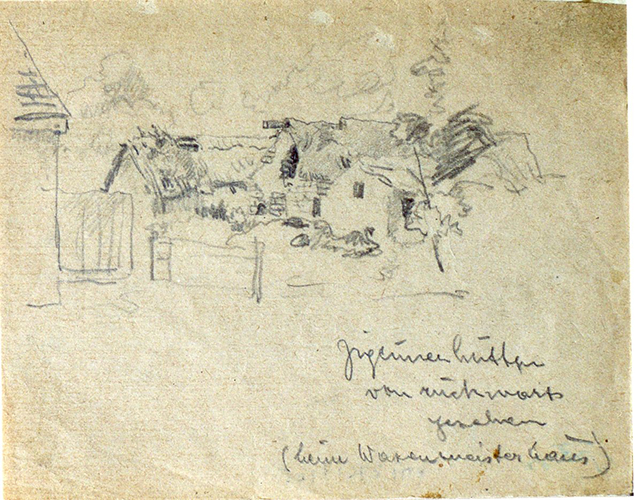 Zigeunerhütten
von rückwärts
gesehen
(beim Wasenmeisterhaus)